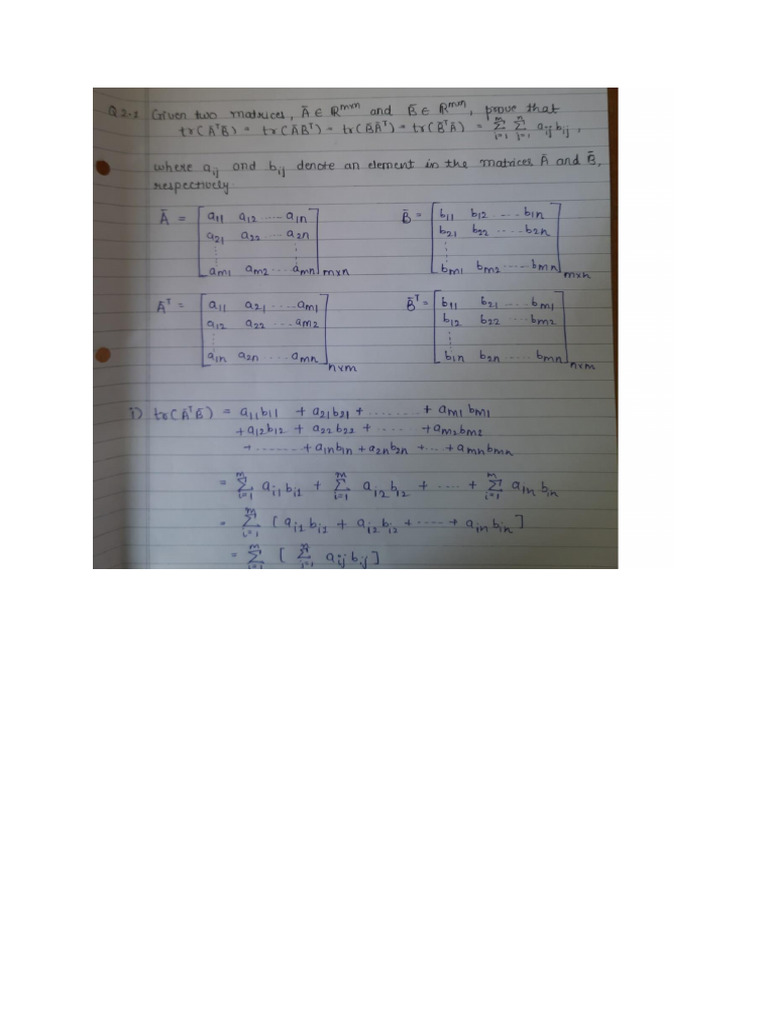 Q 2-2 Given two matrices, Ā ∈ ℝᵐˣⁿ and B̄ ∈ ℝᵐˣⁿ, prove that
tr(ĀᵀB̄) = tr(ĀB̄ᵀ) = tr(B̄Āᵀ) = tr(B̄ᵀĀ) = Σᵢ₌₁ᵐ Σⱼ₌₁ⁿ aᵢⱼbᵢⱼ,
where aᵢⱼ and bᵢⱼ denote an element in the matrices Ā and B̄,
respectively.
Ā = [ a₁₁ a₁₂ ---- a₁ₙ B̄ = [ b₁₁ b₁₂ ---- b₁ₙ
a₂₁ a₂₂ ---- a₂ₙ b₂₁ b₂₂ ---- b₂ₙ
⋮ ⋮ ⋮
aₘ₁ aₘ₂ ---- aₘₙ ]ₘₓₙ bₘ₁ bₘ₂ ---- bₘₙ ]ₘₓₙ
Āᵀ = [ a₁₁ a₂₁ ---- aₘ₁ B̄ᵀ = [ b₁₁ b₂₁ ---- bₘ₁
a₁₂ a₂₂ ---- aₘ₂ b₁₂ b₂₂ ---- bₘ₂
⋮ ⋮
a₁ₙ a₂ₙ ---- aₘₙ ]ₙₓₘ b₁ₙ b₂ₙ ---- bₘₙ ]ₙₓₘ
i) tr(ĀᵀB̄) = a₁₁b₁₁ + a₂₁b₂₁ + ....... + aₘ₁bₘ₁
+ a₁₂b₁₂ + a₂₂b₂₂ + ...... + aₘ₂bₘ₂
+ ....... + a₁ₙb₁ₙ + a₂ₙb₂ₙ + ... + aₘₙbₘₙ
= Σᵢ₌₁ᵐ aᵢ₁bᵢ₁ + Σᵢ₌₁ᵐ aᵢ₂bᵢ₂ + .... + Σᵢ₌₁ᵐ aᵢₙbᵢₙ
= Σᵢ₌₁ᵐ [aᵢ₁bᵢ₁ + aᵢ₂bᵢ₂ + ---- + aᵢₙbᵢₙ]
= Σᵢ₌₁ᵐ [ Σⱼ₌₁ⁿ aᵢⱼbᵢⱼ]